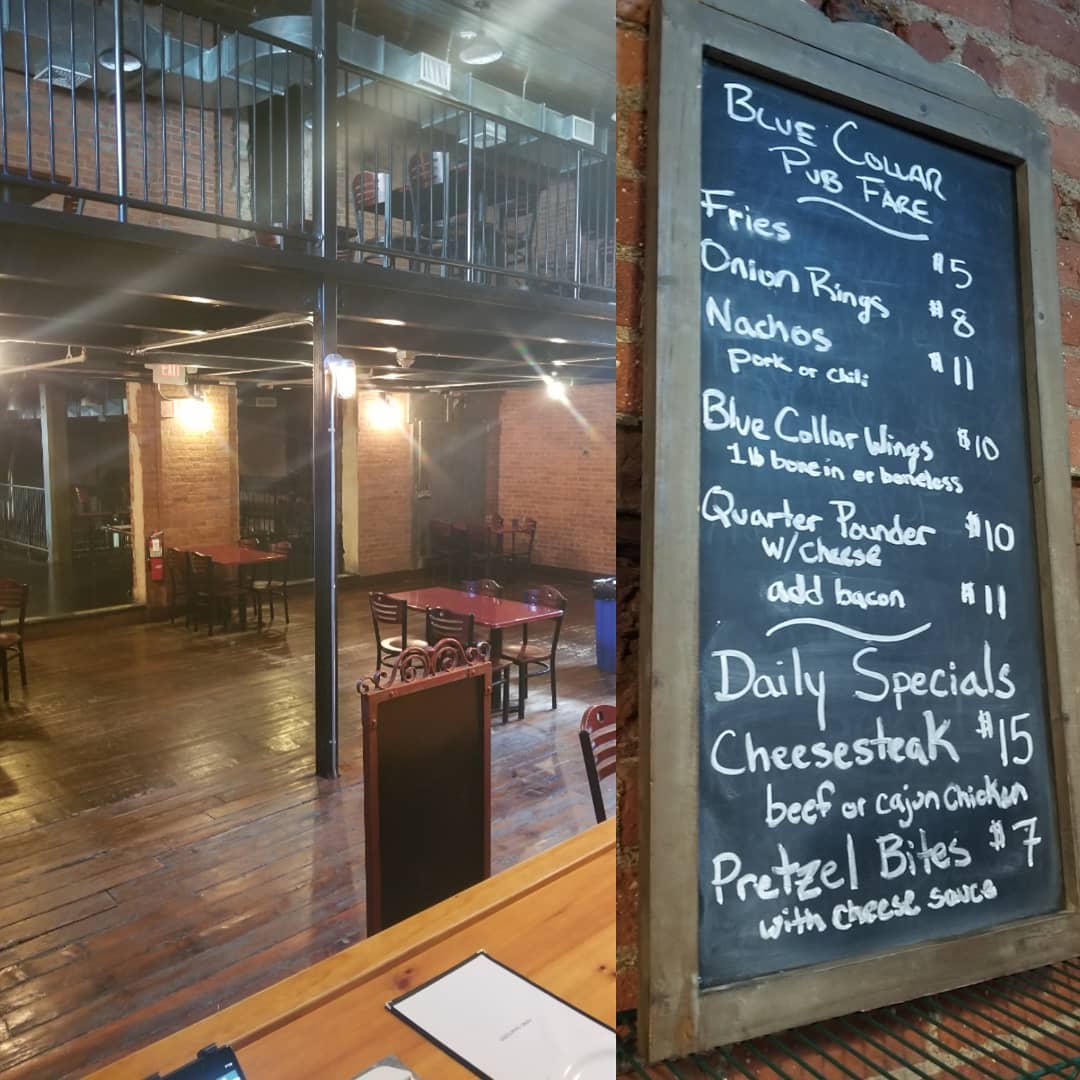 EXIT
BLUE COLLAR
PUB FARE
Fries $5
Onion Rings $8
Nachos $11
Pork or chili
Blue Collar Wings $10
1lb bone in or boneless
Quarter Pounder $10
w/cheese
add bacon $11
Daily Specials
Cheesesteak $15
beef or cajun chicken
Pretzel Bites $7
with cheese sauce